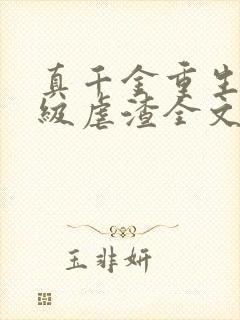 真千金重生
级虐渣全文
玉非妍